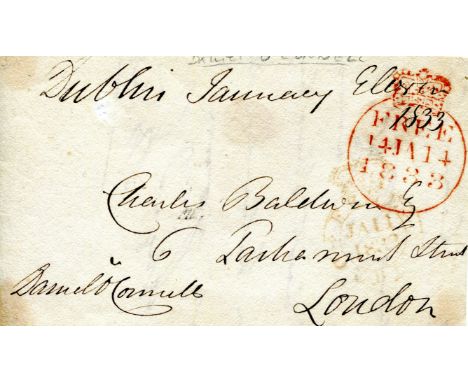 DANIEL O'CONNELL
Dublin January Eleven
1833
FREE
14 JA 14
1833
Charles Baldwin Esq
JA 11
6 Parliament Street
Daniel O'Connell
London